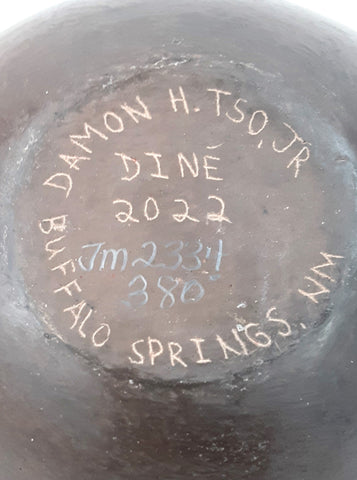 DAMON H. TSO, JR
DINÉ
2022
Jm2334
380
BUFFALO SPRINGS, NM